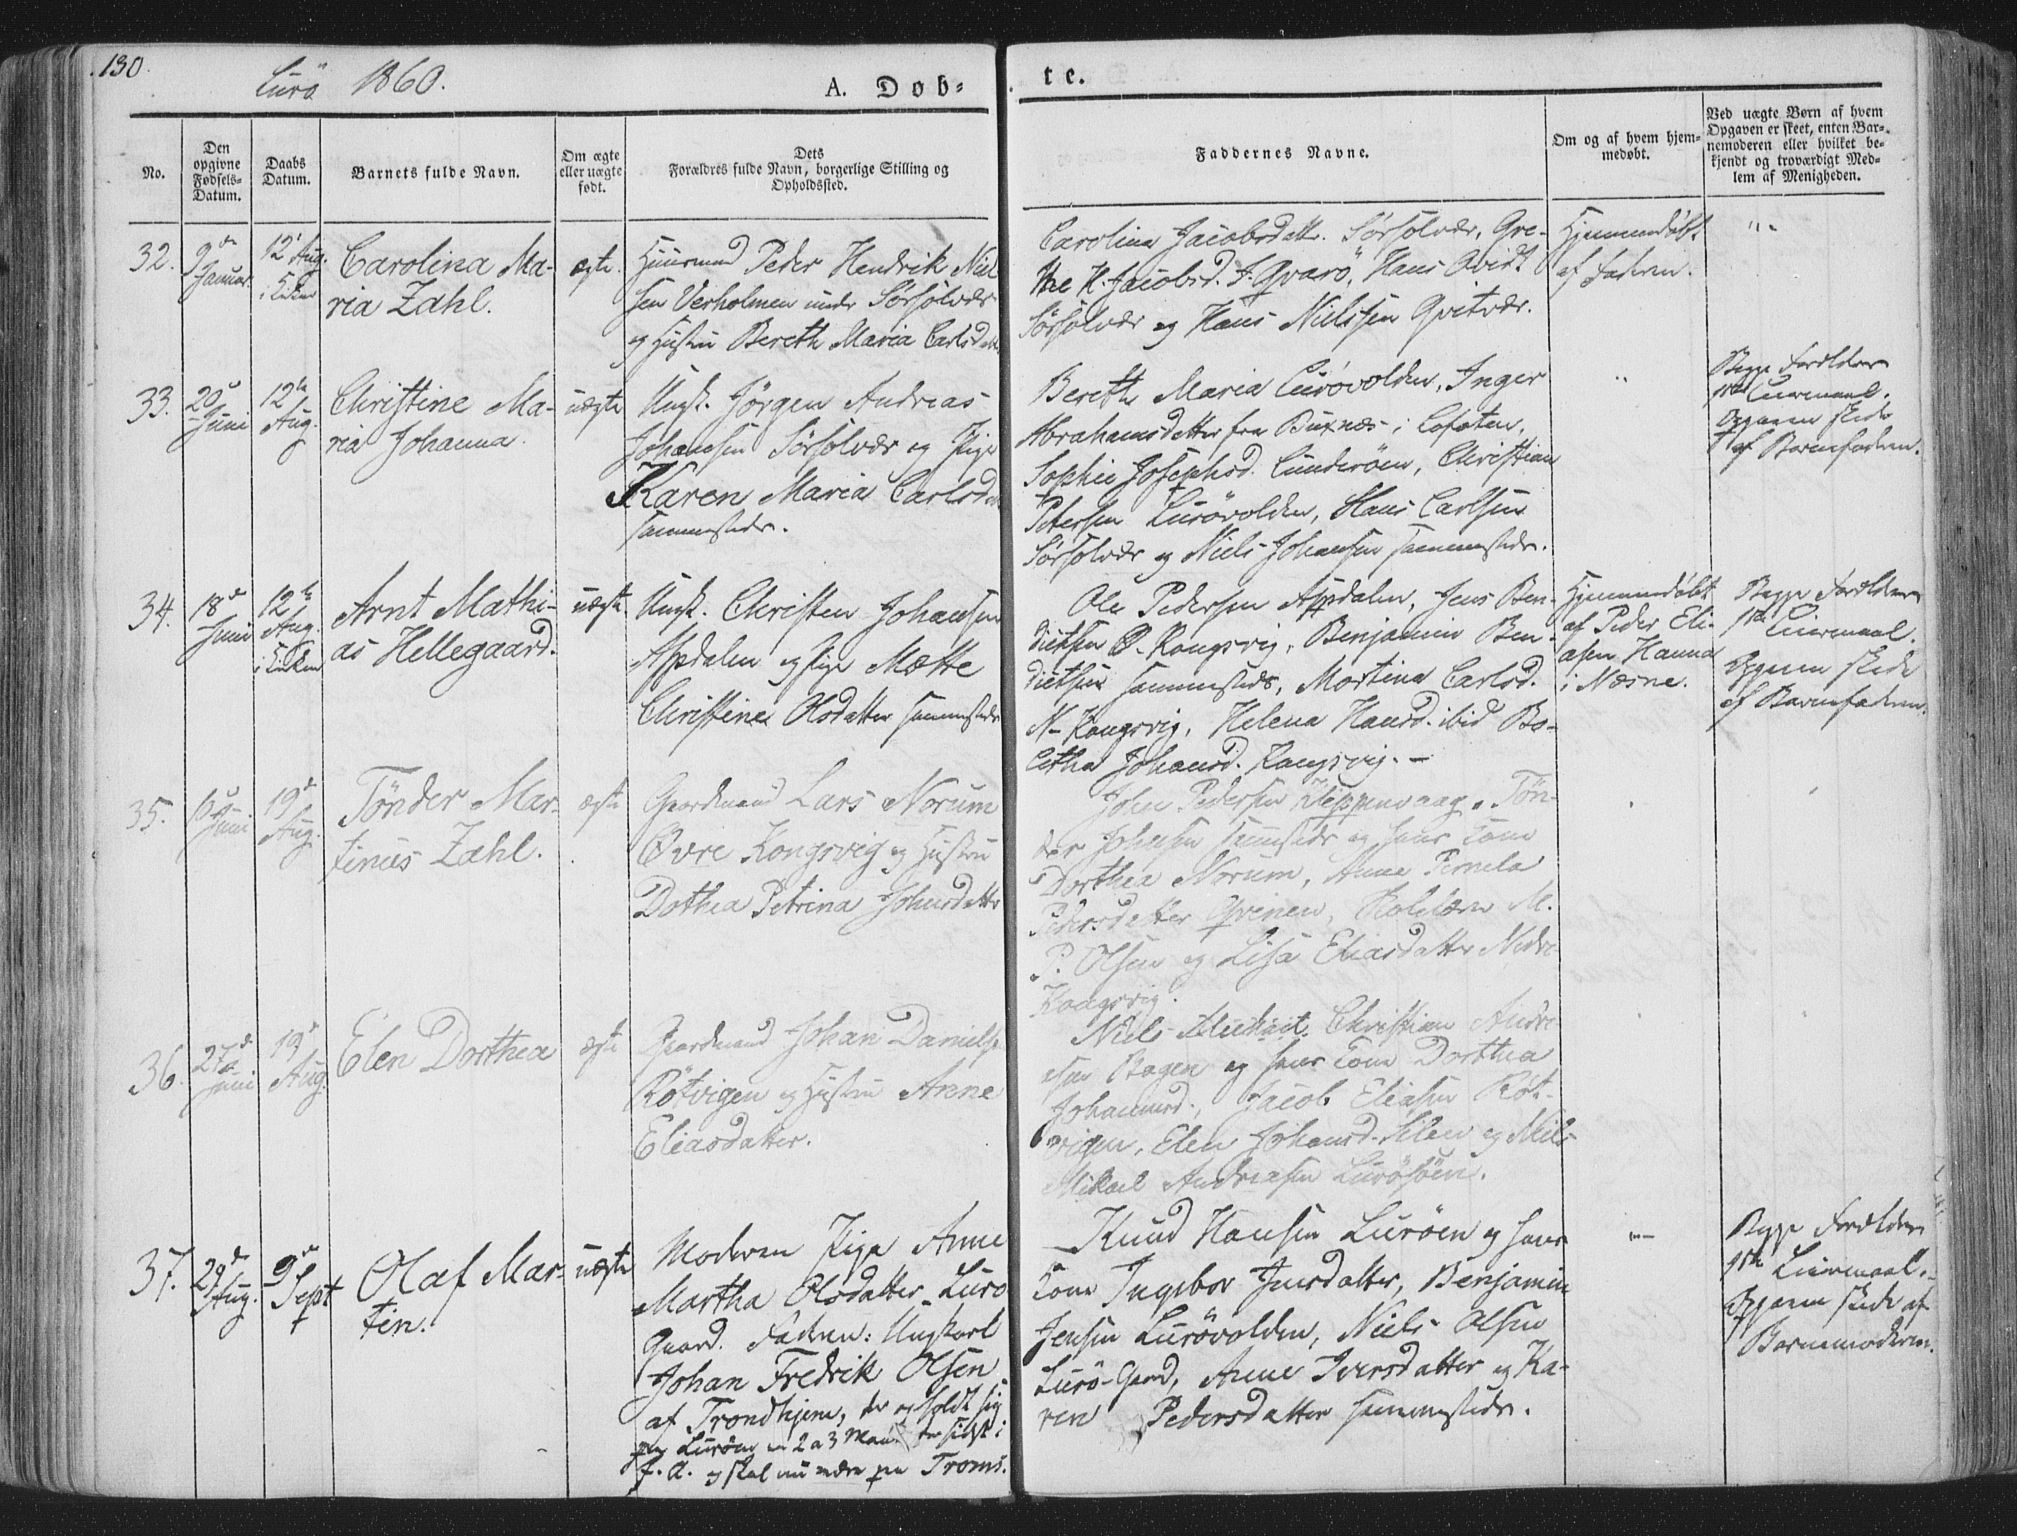 130.
Lurö 1860.
A. Dob-
te.
No.
Den opgivne Fødsels-Datum.
Daabs Datum.
Barnets fulde Navn.
Om ægte eller uægte født.
Dets Forældres fulde Navn, borgerlige Stilling og Opholdssted.
Faddernes Navne.
Om og af hvem hjem-medøbt.
Ved uægte Børn af hvem Opgaven er skeet, enten Bar-nemoderen eller hvilket be-kjendt og troværdigt Med-lem af Menigheden.
32.
9de Januar
12te Aug. i Kirken
Carolina Ma-
ria Zahl.
ægte.
Huusmand Peder Hendrik Niel
sen Verholmen under Sørsolvær
og Hustru Bereth Maria Carlsdatter
Carolina Jacobsdatter. Sørsolvær, Gre-
the H. Jacobsd. I. Qvarö, Hans Qvidt
Sørsolvær og Hans Nielssen Qvitvær.
Hjemmedøbt
af Faderen.
33.
20de Juni
12te Aug.
Christine Ma-
ria Johanna.
uægte
Ungk. Jörgen Andreas
Johansen Sørsolvær og Pige
Karen Maria Carlsd.
sammesteds.
Bereth Maria LuröVolden, Inger
Abrahamsdatter fra Buxnæs i Lofoten,
Sophie Josephsd. Lunderöen, Christian
Petersen Lurövolden, Hans Carlsen
Sørsolvær og Niels Johansen sammesteds.
Begge Forældres
1ste Leiermaal.
Opgaven skede
af Barnefaderen.
34.
18de Juni
12te Aug. i Kirken
Arnt Mathi-
as Hellegaard.
uægte
Ungk. Christen Johansen
Aspdalen og Pige Mætte
Christine Olsdatter sammesteds
Ole Pedersen Aspdalen, Jens Ben-
dictsen Ø. Kongsvig, Benjamin Ben-
dictsen sammesteds, Martina Carlsd.
N. Kongsvig, Helena Hansd. ibid Bo-
letha Johansd. Kongsvig.
Hjemmedøbt
af Peder Eli-
asen Hanna
i Næsne.
Begge Forældres
1ste Leiermaal.
Opgaven skede
af Barnefaderen.
35.
Juni
19de Aug.
Tönder Mar-
tinus Zahl.
ægte
Gaardmand Lars Norum
Øvre Kongsvig og Hustru
Dothea Petrina Johnsdatter
John Pedersen Kleppenvaag, Tön-
der Johnsen sammesteds og hans Kone
Dorthea Norum, Anne Pernela
Pedersdatter Qvinen, M.
P. Olsen og Lisa Eliasdatter Nedre
Kongsvig.
36.
27de Juni
19de Aug.
Elen Dorthea
ægte
Gaardmand Johan Daniels.
Rötvigen og Hustru Anne
Eliasdatter.
Niels Christian Andre-
sen Bagen og hans Kone Dorthea
Johannesd., Jacob Eliasen Röt-
vigen, Elen Johansd. Silen og Niels
Mikael Andreasen Lurösöen.
37.
29de Aug.
9de Sept
Olaf Mar-
tin.
uægte
Moderen Pige Anne
Martha Olsdatter Lurö
Gaard. Faderen: Ungkarl
Johan Fredrik Olsen
af Trondhjem, der opholdt sig
paa Luröen en 2 a 3 Maaneder sidst i
f. A. og skal nu være paa Troms.
Knud Hansen Luröen og hans
Kone Ingebor Jensdatter, Benjamin
Jensen Lurövolden, Niels Olsen
Lurö-Gaard, Anne Iversdatter og Ka-
ren Pedersdatter sammesteds.
Begge Forældres
1ste Leiermaal.
Opgaven skede af
Barnemoderen.